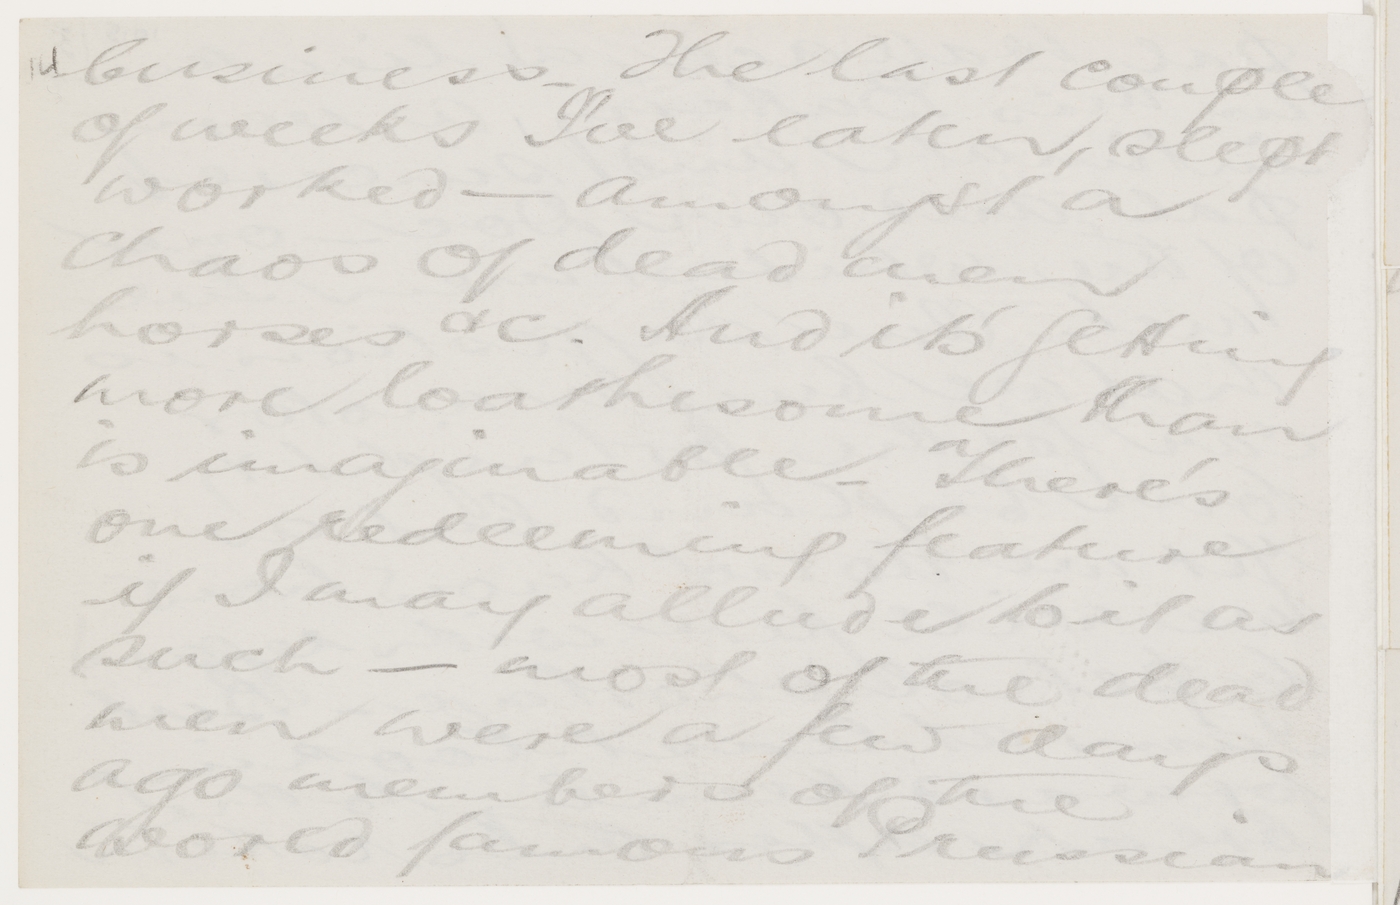 business. The last couple
of weeks I've eaten, slept
worked — amongst a
chaos of dead men
horses &c. And it's getting
more loathesome than
is imaginable. There's
one redeeming feature
if I may allude to it as
such — most of the dead
men were a few days
ago members of the
world famous Prussian